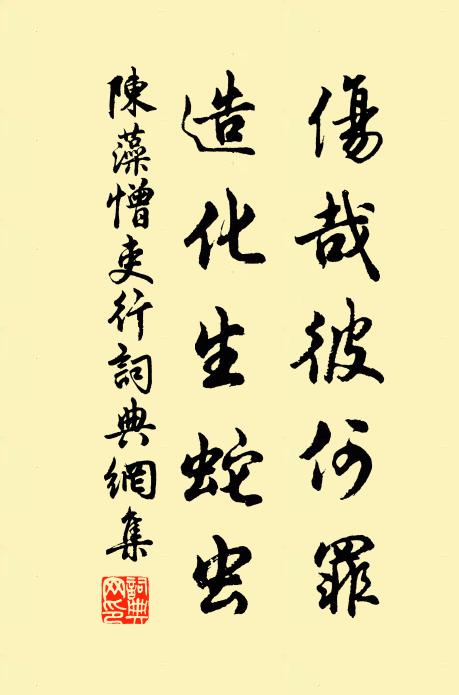 傷哉彼何罪
造化生蛇虫
陳藻憎吏行詞典網集
詞典網印